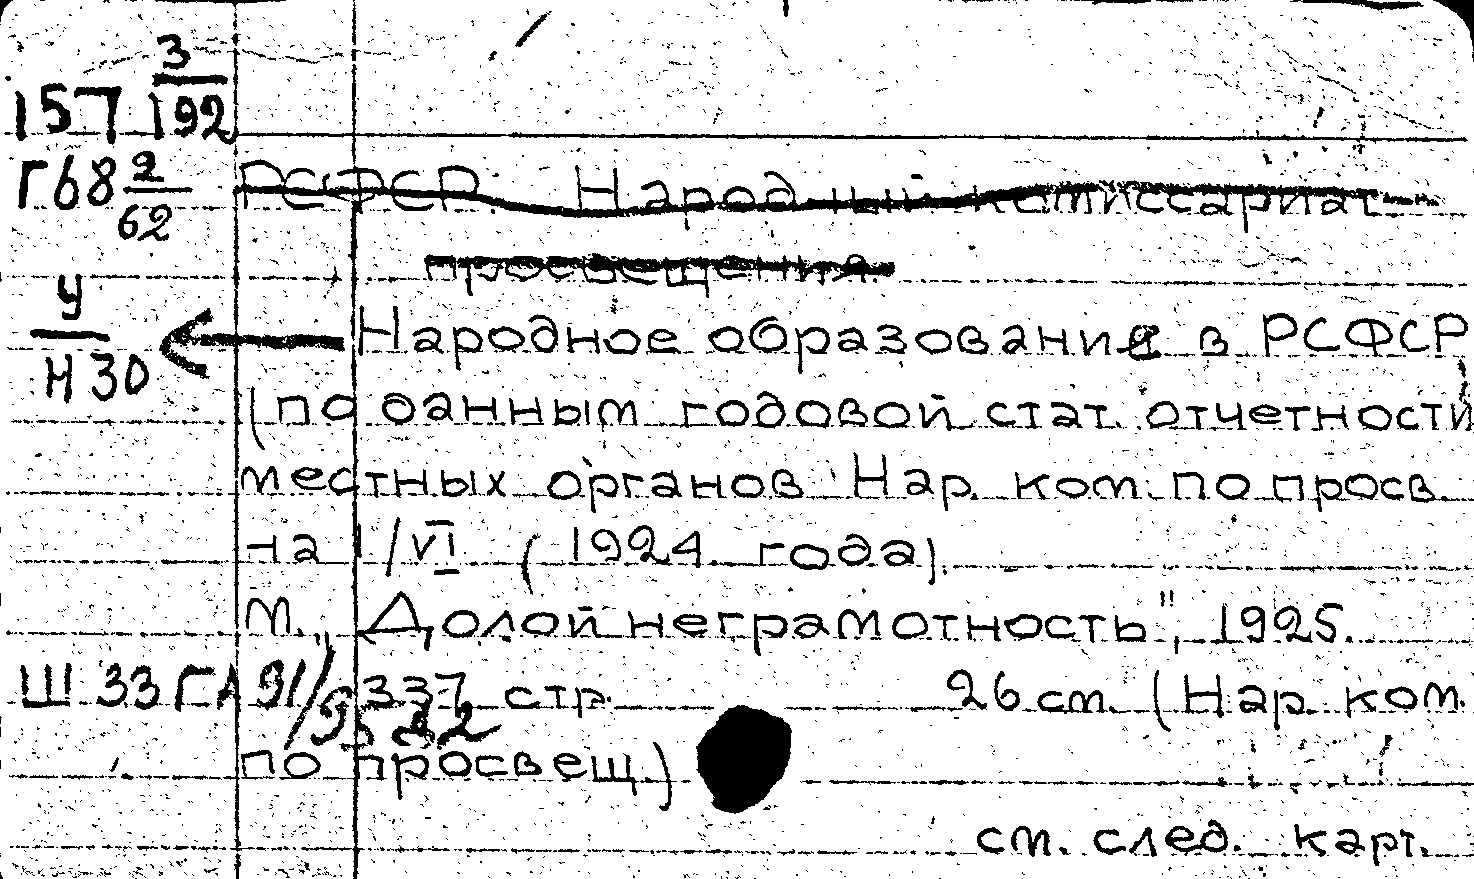 157 3/192
Г68 2/62
РСФСР. Народный комиссариат
просвещения.
У/Н30 ← Народное образование в РСФСР
(по данным годовой стат. отчетности
местных органов Нар. ком. по просв.
на 1/VI (1924 года).
М., „Долой неграмотность", 1925.
Ш 33 ГА 91/ 337 стр. 26 см. (Нар. ком.
по просвещ.)
см. след. карт.